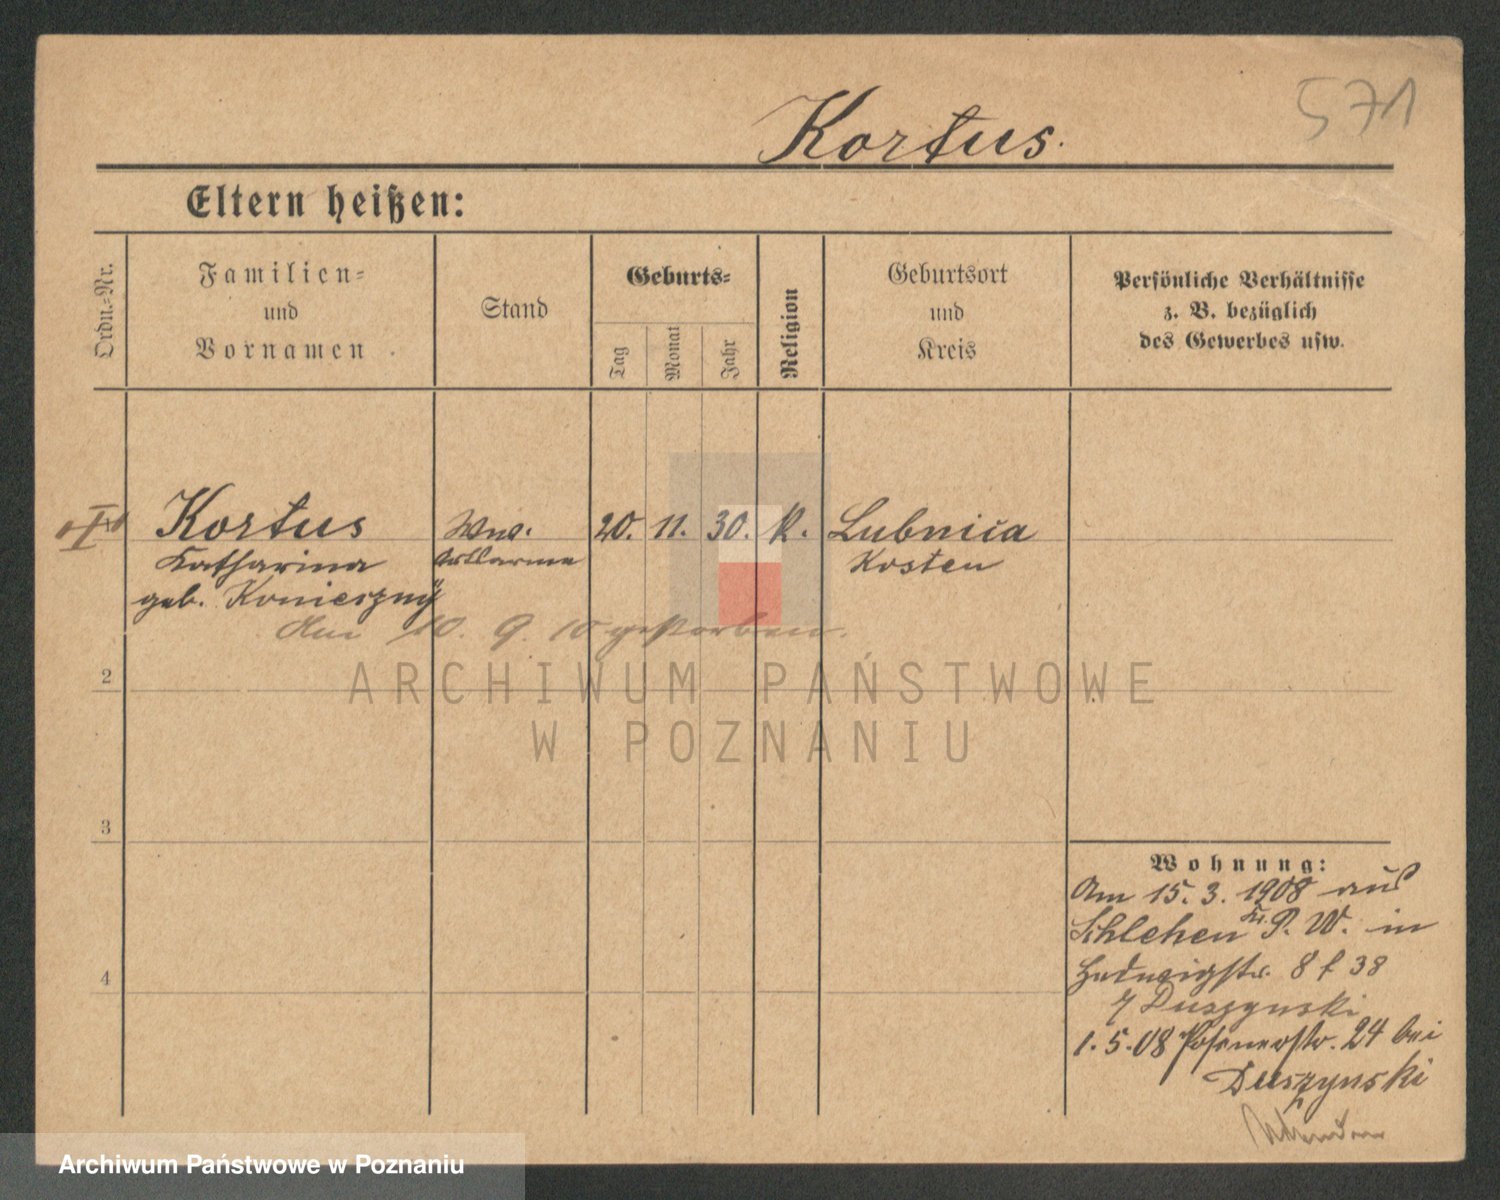 571
Kortus.
Eltern heißen:
Ordn.-Nr.
Familien-
und
Vornamen
Stand
Geburts-
Tag
Monat
Jahr
Religion
Geburtsort
und
Kreis
Persönliche Verhältnisse
z. B. bezüglich
des Gewerbes usw.
Kortus
Wwe.
20. 11. 30. K.
Lubnica
Katharina
Kosten
geb. Konieszny
Am 10. 9. 10 gestorben.
2
ARCHIWUM PAŃSTWOWE
W POZNANIU
3
Wohnung:
Am 15. 3. 1908 aus
Schlehen Kr. P. W. in
Hedwigstr. 8 f 38
Duszynski
1. 5. 08 Posenerstr. 24 bei
Duszynski
4
Archiwum Państwowe w Poznaniu